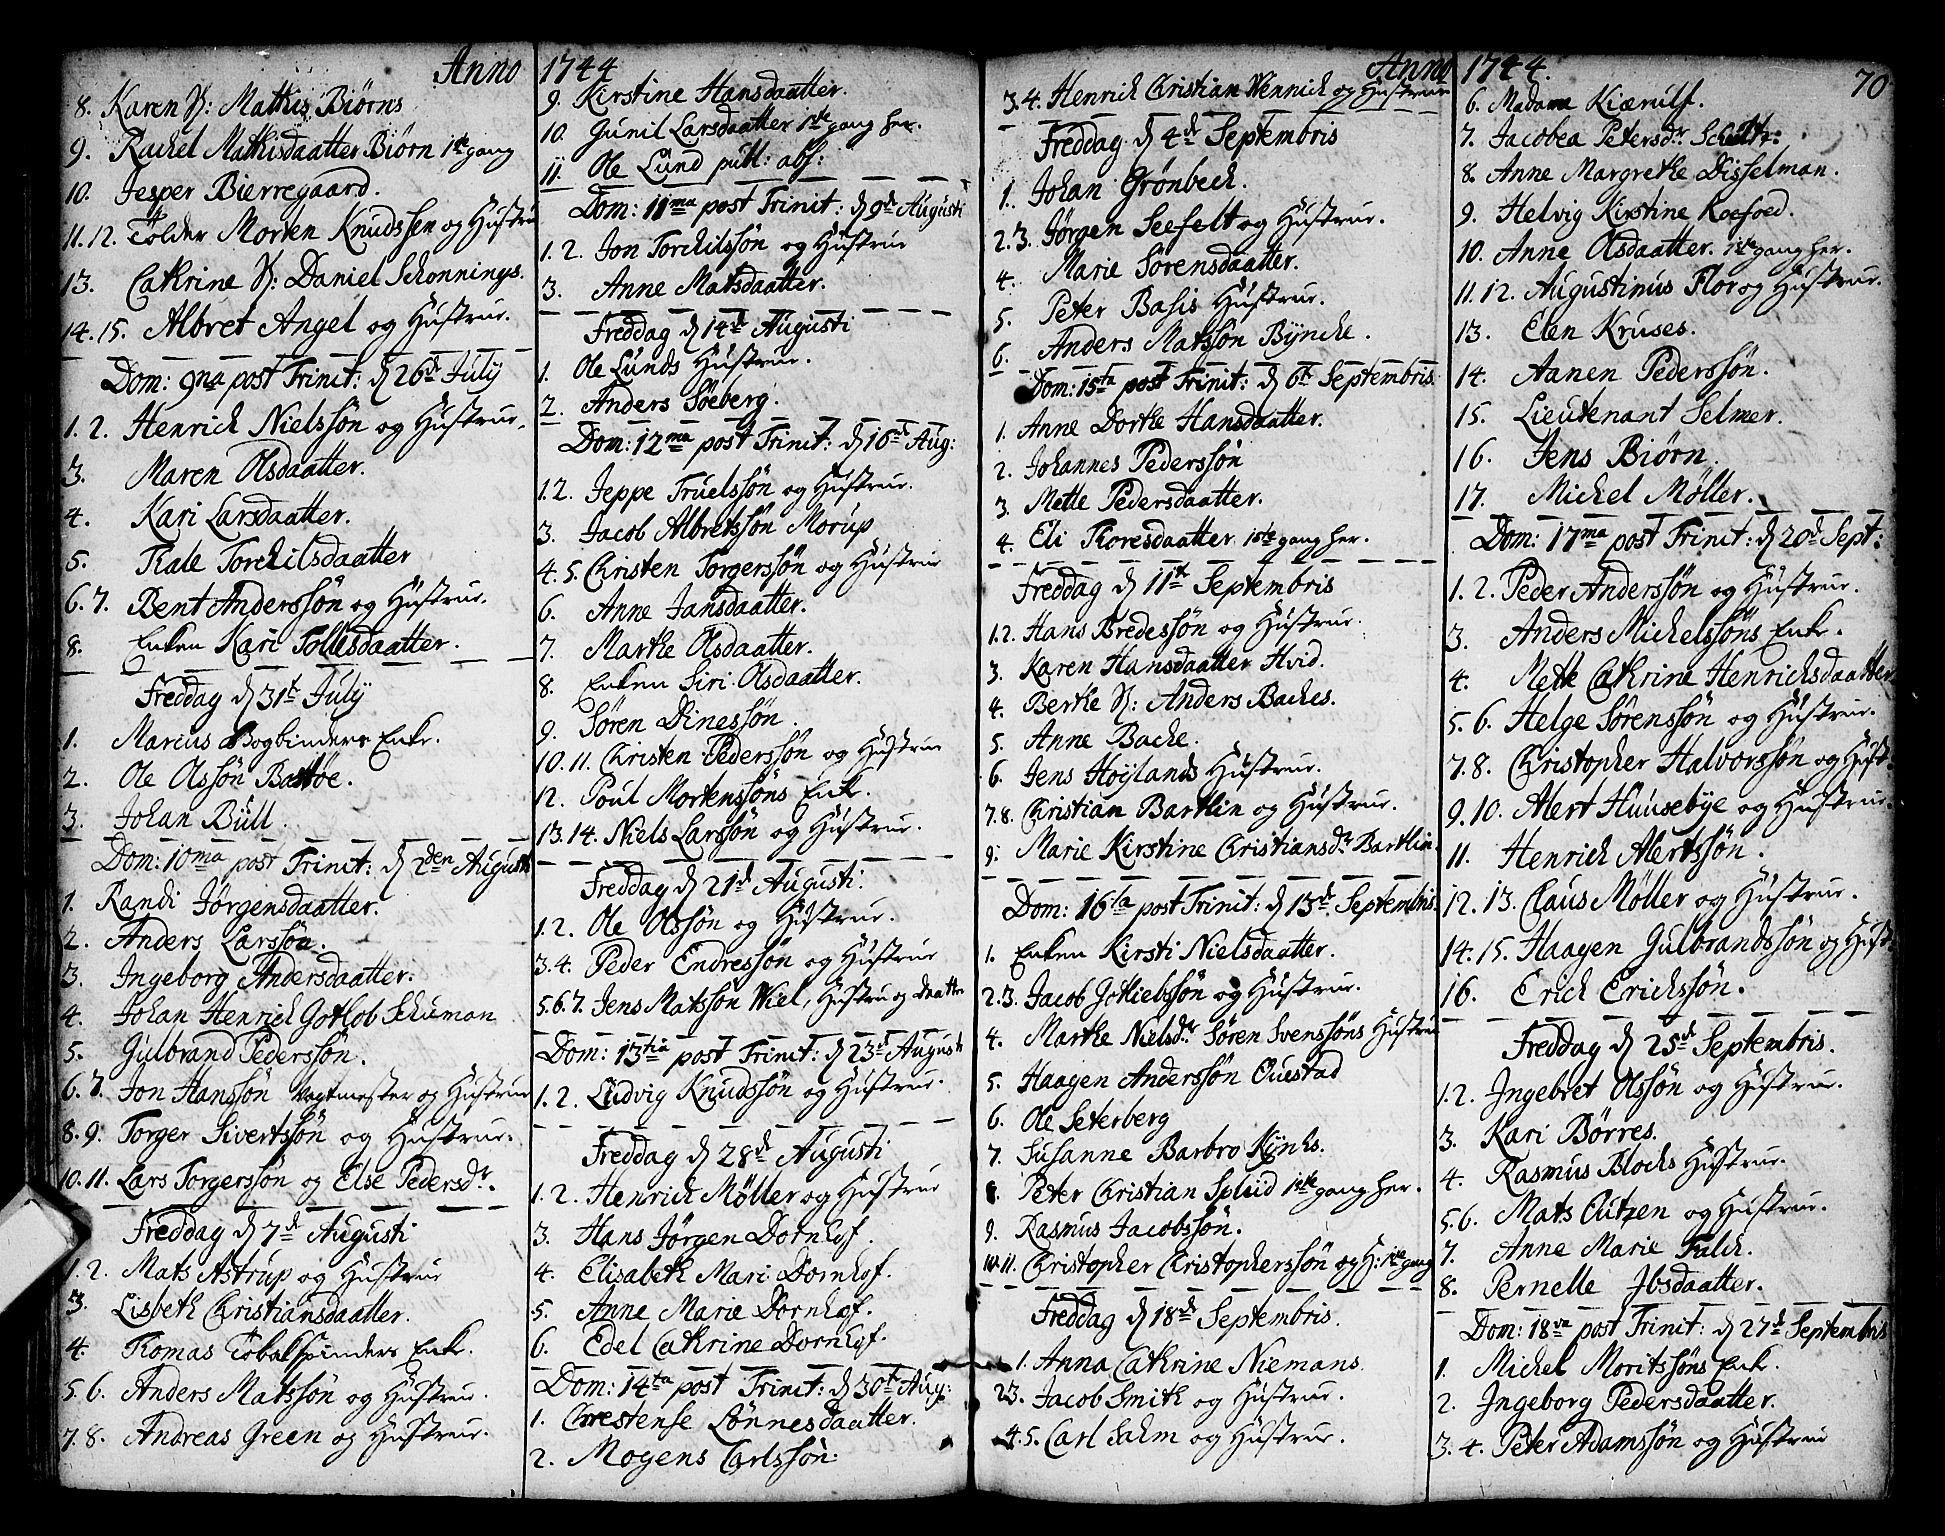 Anno 1744
8. Karen H: Mathis Biørns
9. Rachel Mathisdaatter Biørn 1ste gang
10. Jesper Bierregaard.
11. 12. Tolder Morten Knudssen og Hustru
13. Cathrine H: Daniel Schonnings.
14. 15. Albret Angel og Hustrue.
Dom: 9na post Trinit: d 26de July
1. 2. Henrich Nielssøn og Hustrue.
3. Maren Olsdaatter.
4. Kari Larsdaatter.
5. Thale Torchilsdaatter
6. 7. Bent Anderssøn og Hustrue.
8. Enken Kari Tollesdaatter.
Freddag d 31t July
1. Marcus Bogbinders Enke.
2. Ole Olssøn Bastøe.
3. Johan Büll.
Dom: 10ma post Trinit: d 2den Augusti
1. Randi Jørgensdaatter.
2. Anders Larssøn.
3. Ingeborg Andersdaatter.
4. Johan Henrich Gotlob Schuman
5. Gulbrand Pederssøn.
6. 7. Jon Hanssøn Vagtmester og Hustrue
8. 9. Torger Sivertssøn og Hustrue.
10. 11. Lars Torgerssøn og Else Pedersdr.
Freddag d 7de Augusti
1. 2. Mats Astrup og Hustrue
3. Lisbeth Christiansdaatter.
4. Thomas Tobakspinders Enke.
5. 6. Anders Matssøn og Hustrue.
7. 8. Andreas Green og Hustrue.
9. Kirstine Hansdaatter.
10. Gunil Larsdaatter 1ste gang her.
11. Ole Lund publ: abs:
Dom: 11ma post Trinit: d 9de Augusti
1. 2. Jon Torchilssøn og Hustrue
3. Anne Matsdaatter.
Freddag d 14de Augusti
1. Ole Lunds Hustrue.
2. Anders Søeberg.
Dom: 12ma post Trinit: d 16de Aug:
1. 2. Jeppe Truelssøn og Hustrue.
3. Jacob Albretssøn Morup
4. 5. Christen Torgerssøn og Hustrue
6. Anne Jansdaatter.
7. Marthe Olsdaatter.
8. Enken Siri Olsdaatter.
9. Søren Dinessøn.
10. 11. Christen Pederssøn og Hustrue
12. Poul Mortenssøns Enke.
13. 14. Niels Larssøn og Hustrue.
Freddag d 21de Augusti.
1. 2. Ole Olssøn og Hustrue.
3. 4. Peder Endressøn og Hustrue
5. 6. 7. Jens Matssøn Wiel, Hustru og Daatter
Dom: 13tia post Trinit: d 23de Augusti
1. 2. Ludvig Knudssøn og Hustrue.
Freddag d 28de Augusti
1. 2. Henrich Møller og Hustrue
3. Hans Jørgen Dornhof.
4. Elisabeth Mari Dornhof.
5. Anne Marie Dornhof.
6. Edel Cathrine Dornhof.
Dom: 14ta post Trinit: d 30t Aug:
1. Chrestense Lønnesdaatter.
2. Mogens Carlssøn:
Anno 1744. 70
3. 4. Henrich Christian Wennich og Hustrue
Freddag d 4de Septembris
1. Johan Grønbech.
2. 3. Jørgen Seefelt og Hustrue.
4. Marie Sørensdaatter.
5. Peter Basis Hustrue.
6. Anders Matssøn Byncke.
Dom: 15ta post Trinit: d 6te Septembris.
1. Anne Dorthe Hansdaatter.
2. Johannes Pederssøn
3. Mette Pedersdaatter.
4. Eli Thoresdaatter 1ste gang her.
Freddag d 11te Septembris
1. 2. Hans Bredessøn og Hustrue.
3. Karen Hansdaatter Hvid.
4. Berthe H: Anders Baches.
5. Anne Bache.
6. Jens Hoylands Hustrue.
7. 8. Christian Bartlin og Hustrue.
9. Marie Kirstine Christiansdr Bartlin.
Dom: 16ta post Trinit: d 13de Septembris.
1. Enken Kirsti Nielsdaatter.
2. 3. Jacob Gotliebssøn og Hustrue.
4. Marthe Nielsdr Søren Svenssøns Hustrue
5. Haagen Anderssøn Ouestad
6. Ole Seterberg
7. Susanne Barbro Kynhs.
8. Peter Christian Splud 1ste gang her.
9. Rasmus Jacobssøn.
10. 11. Christopher Christopherssøn og H: 1ste gang
Freddag d 18de Septembris.
1. Anna Cathrine Niemans.
2 3. Jacob Smith og Hustrue.
4. 5. Carl Sahm og Hustrue.
6. Madame Kiærulf.
7. Jacobea Petersdr. Schultz.
8. Anne Margrethe Disselman.
9. Helvig Kirstine Roefoed.
10. Anne Olsdaatter. 1ste gang her.
11. 12. Augustinus Flor og Hustrue.
13. Elen Kruses.
14. Aanen Pederssøn.
15. Lieutenant Selmer.
16. Jens Biørn.
17. Michel Møller.
Dom: 17ma post Trinit: d 20de Sept:
1. 2. Peder Anderssøn og Hustrue.
3. Anders Michelssøns Enke.
4. Mette Cathrine Henrichsdaatter
5. 6. Helge Sørenssøn og Hustrue.
7. 8. Christopher Halvorssøn og Hust:
9. 10. Alert Huusebye og Hustrue.
11. Henrich Alertssøn.
12. 13. Claus Møller og Hustrue.
14. 15. Haagen Gulbrandssøn og Hust:
16. Erich Erichssøn.
Freddag d 25de Septembris.
1. 2. Ingebret Olssøn og Hustrue.
3. Kari Børres.
4. Rasmus Blochs Hustrue.
5. 6. Mats Outzen og Hustrue.
7. Anne Marie Falch.
8. Pernelle Ibsdaatter.
Dom: 18va post Trinit: d 27de Septembris
1. Michel Moritssøns Enke.
2. Ingeborg Pedersdaatter.
3. 4. Peter Adamssøn og Hustrue